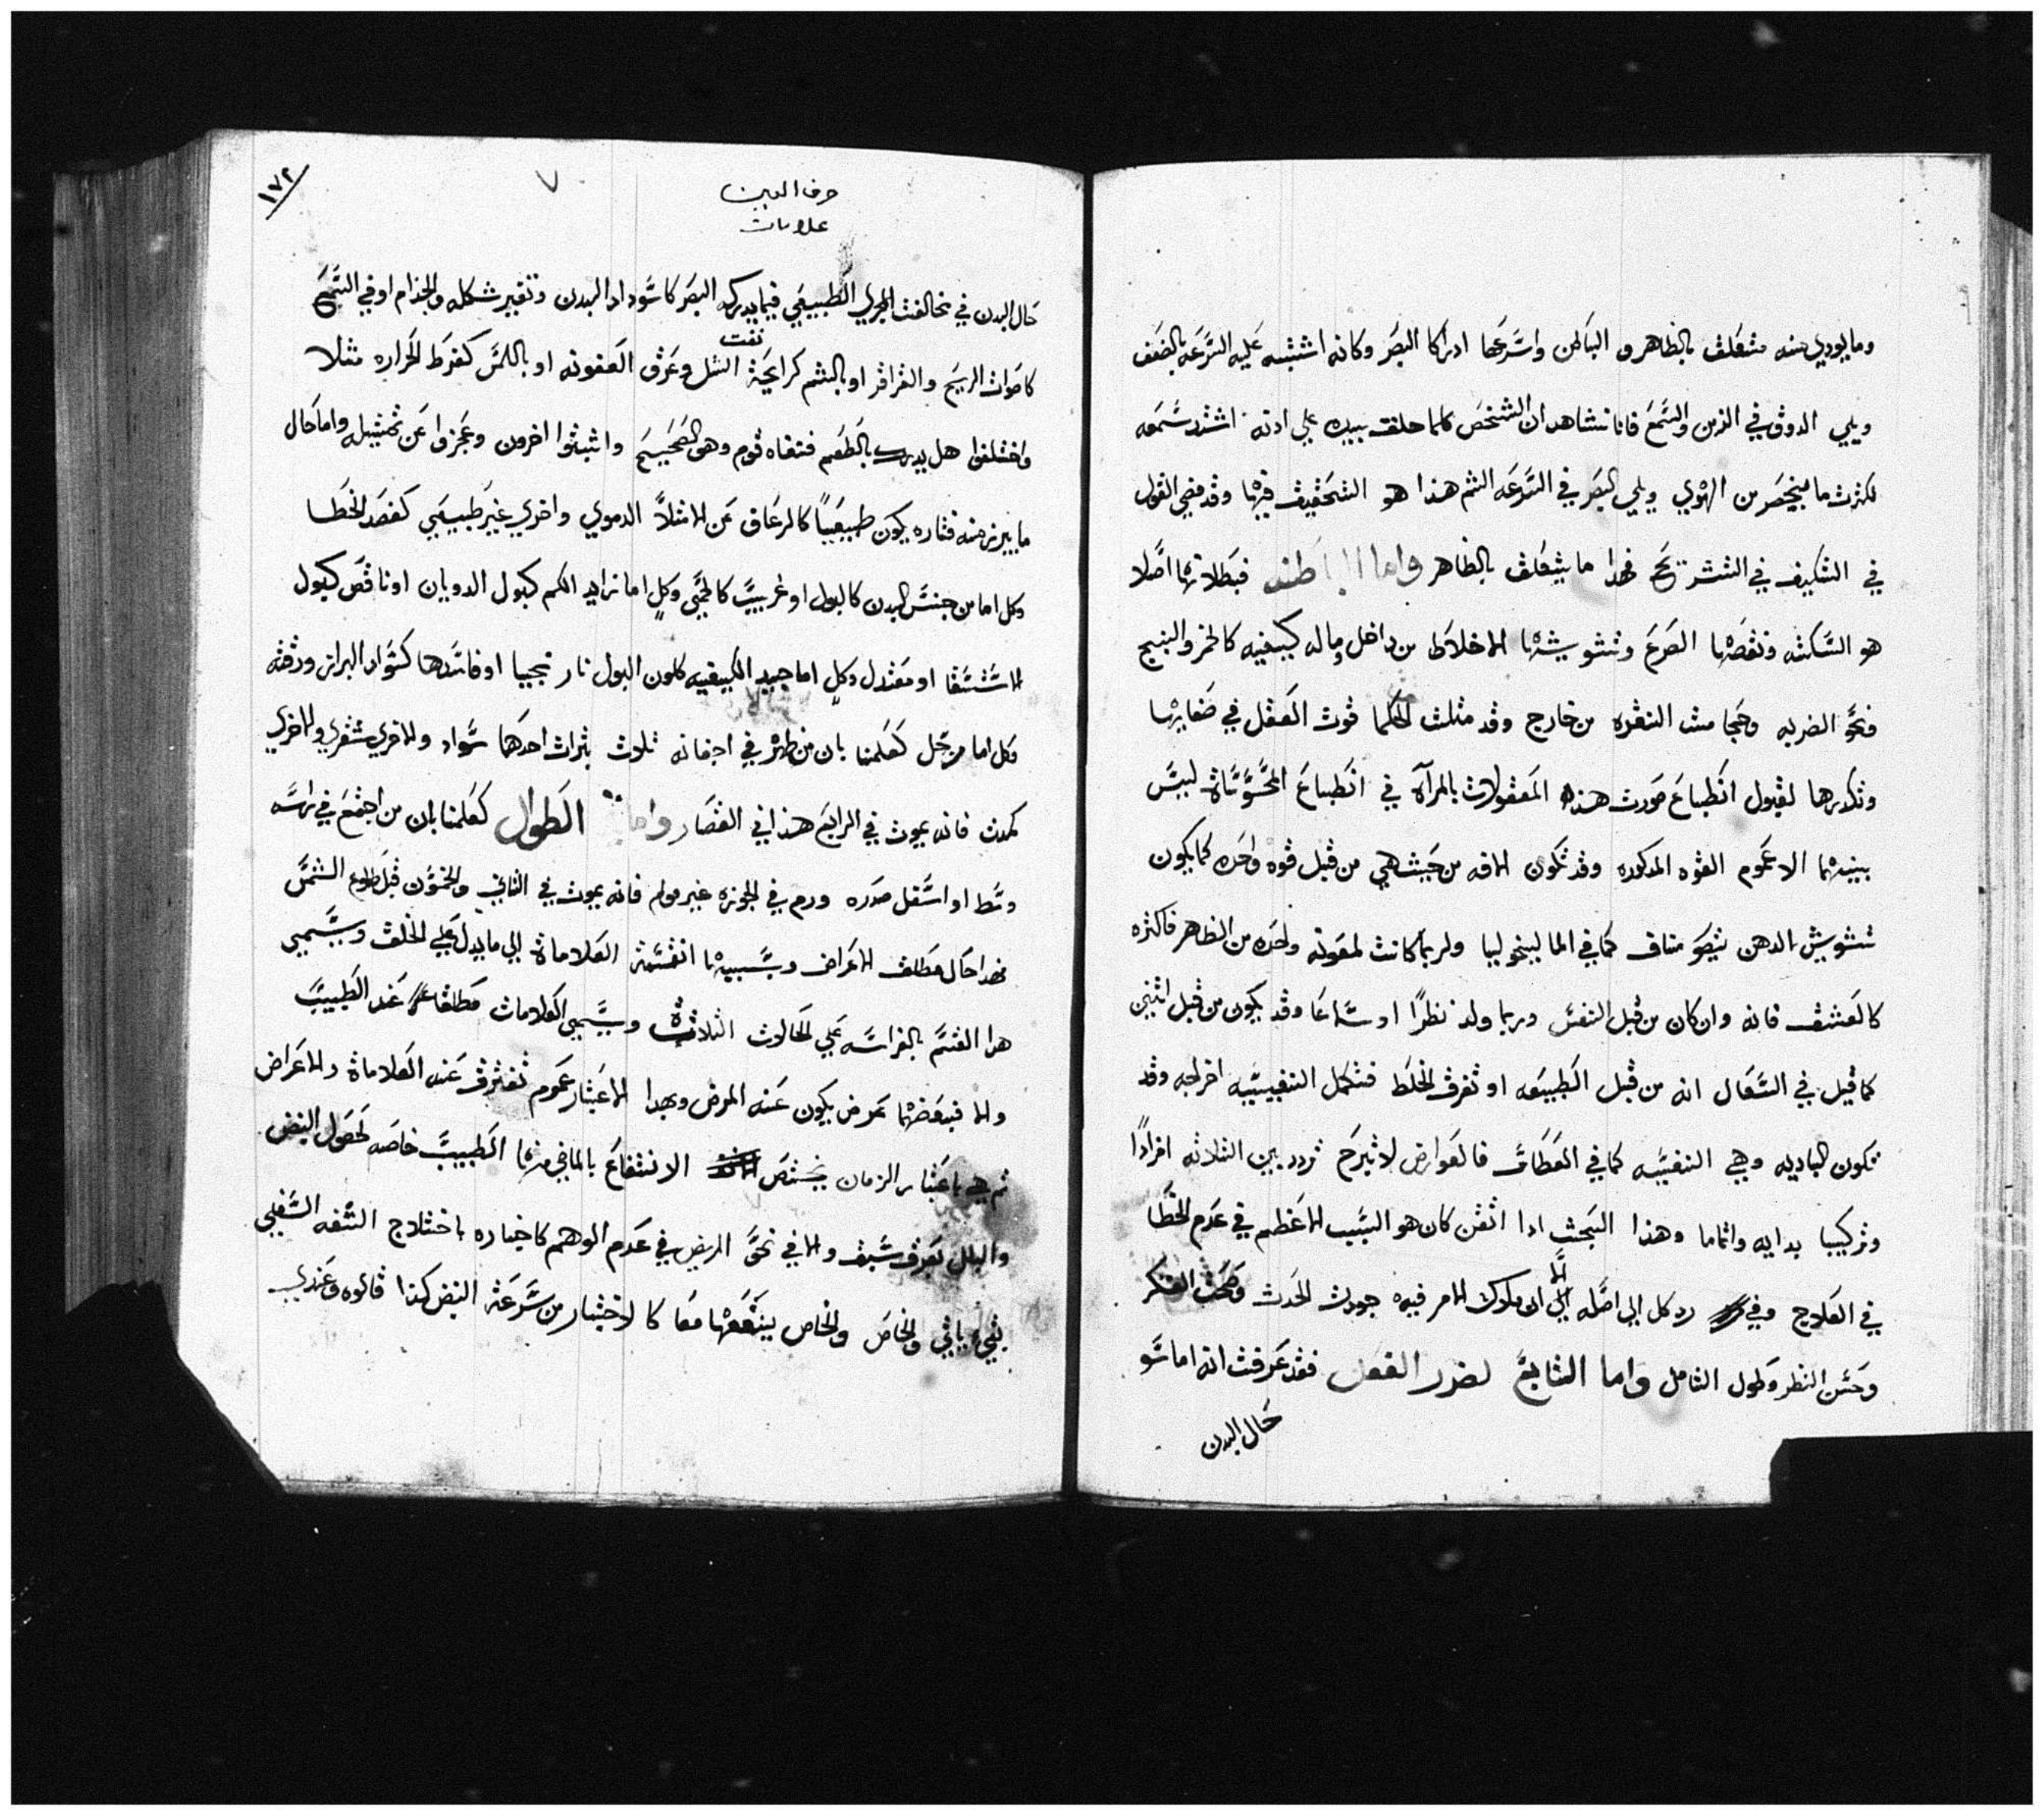 وما يودي منه متعلق بالظاهر و الباطن واسرعها ادراكا البصر وكانه اشتبه عليه السرعه بالضعف
ويلي الدوق في الزمن والسمع فانا نشاهد ان الشخص كلما حلق بيده علي ادنه اشتد سمعه
لكثرت ما ينحصر من الهوي ويلي البصر في السرعه الشم هذا هو التحقيق فيها وقد مضي القول
في التكيف في التشريح فهدا ما يتعلق بالظاهر واما الباطنه فبطلانها اصلا
هو السكته ونقصها الصرع وتشويشها الاخلاط من داخل وما له كيفيه كالخمر والبنج
فنحو الضربه وحجامت النقره من خارج وقد مثلت الحكما قوت العقل في صفايها
وتكدرها لقبول انطباع صورت هذه المعقولات بالمرآة في انطباع المحسوساة ليس
بينهما الا عموم القوه المدكوره وقد تكون الافه من حيث هي من قبل قوه واحده كما يكون
تشويش الدهن بنحو مناف كما في الماليخوليا ولربما كانت لمعونه واحده من الظاهر فاكثره
كالعشق فانه وان كان من قبل النفس وربما ولد نظرًا او سماعا وقد يكون من قبل اثنين
كما قيل في السعال انه من قبل الطبيعه او تفرق الخلط فتكمل النفسيه اخراجه وقد
تكون الباديه وهي النفسيه كما في العطاس فالعوارض لا تبرح تردد بين الثلاثه افرادًا
وتركيبا بدايه واتماما وهذا البحث ادا اتقن كان هو السبب الاعظم في عدم الخطا
في العلاج وفي رد كل الي اصله الا ان ملوك الامر فيه جودت الحدث وصحت الفكر
وحسن النظر وطول التامل واما التابع لضرر الفعل فقد عرفت انه اما سو
حال البدن
١٧٢
حرف العين
علامات
حال البدن في مخالفت المجري الطبيعي فيما يدركه البصر كاسوداد البدن وتغير شكله والجذام او في السمع
نفت
كاصوات الريح والقراقر او بالشم كرايحة السل وعرق العفونه او باللمس كفرط الحراره مثلا
واختلفوا هل يدرك بالطعم فنفاه قوم وهو الصحيح واثبتوا اخرون وعجزوا عن تمثيله واما حال
ما يبرز منه فتاره يكون طبيعيًا كالرعاف عن الامتلاً الدموي واخري غير طبيعي كفصد الخطا
وكل اما من جنس البدن كالبول او غريب كالحصي وكلٍ اما زايد الكم كبول الدوبان او ناقص كبول
الاستسقا او معتدل وكل اما جيد الكيفيه كلون البول نارنجيا او فاسدها كسواد البراز ورقته
وكل اما مرتجل كعلمنا بان من ظهر في اجفانه ثلاث بثرات احدهما سواد والاخري شقري والاخري
كمدت فانه يموت في الرابع هذا في القصار واما الطوال كعلمنا بان من اجتمع في راسه
وسط او اسفل صدره ورم في الجوزه غير مولم فانه يموت في الثاني والخمسون قبل طلوع الشمس
فهدا حال مطلق الاعراض وبسببها انقسمة العلاماة الي ما يدل علي الخلق ويسمي
هدا القسم بالفراسه علي الحالات الثلاثة ويسمي العلامات مطلقا عند الطبيب
والا فبعضها عرض يكون عنه المرض وبهدا الاعتبار عموم تفترق عنه العلاماة والاعراض
ثم هي باعتبار الزمان يختص الانتفاع بالماضي منها الطبيب خاصه لحصول النبض
والبلل بعرق سبق والاتي نحو المريض في عدم الوهم كاخباره باختلاج الشفه السفلي
بقيء ياتي والخاص والخاص ينفعهما معا كالاختبار من سرعة النبض كذا قالوه وعندي